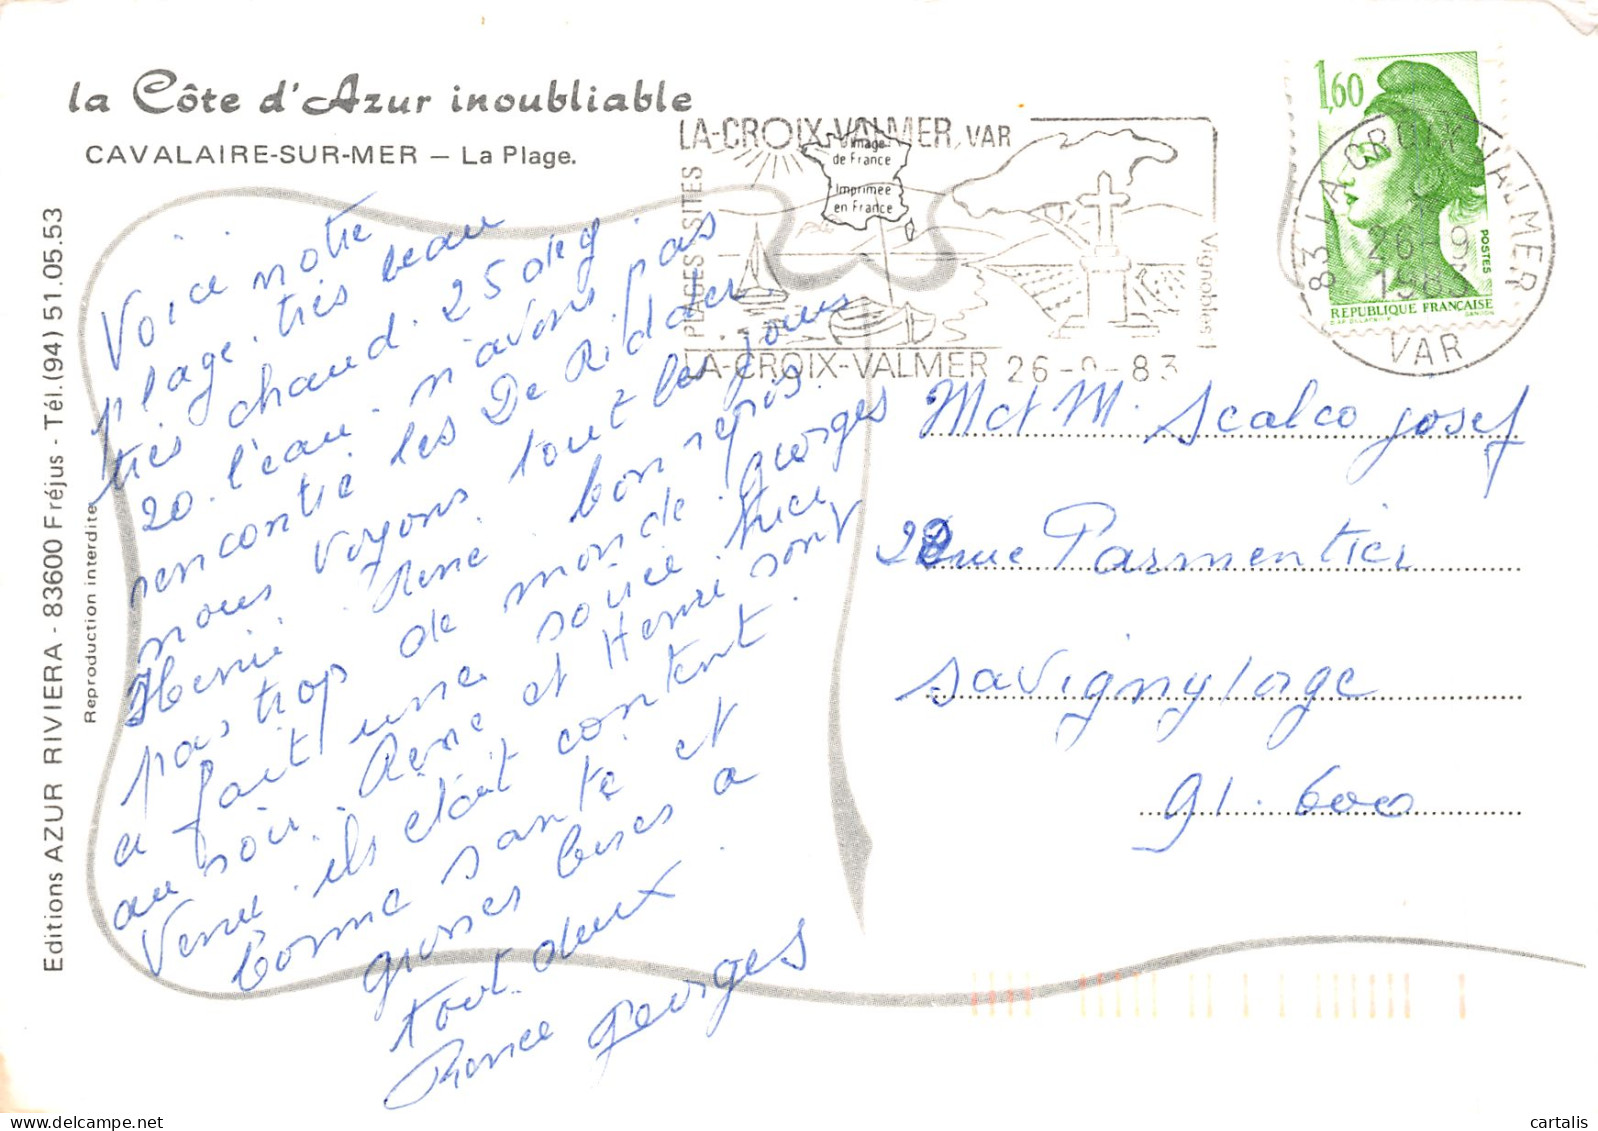 la Côte d'Azur inoubliable
CAVALAIRE-SUR-MER — La Plage.
Editions AZUR RIVIERA - 83600 Fréjus - Tél. (94) 51.05.53
Reproduction interdite
Voici notre
plage. très beau
très chaud. 25 deg
20. l'eau. n'avons pas
rencontré les De Ridder
nous voyons tout les jours
Henri. René. bon repos.
pas trop de monde. georges
a fait une soirée hier
au soir. René et Henri sont
venu. ils était content.
bonne santé et
grosses bises a
tout deux.
Renée georges
LA-CROIX-VALMER, VAR
PLAGES SITES
Vignobles
LA-CROIX-VALMER 26-9-83
Image
de France
Imprimée
en France
1,60
POSTES
REPUBLIQUE FRANÇAISE
GANDON
83 LA CROIX VALMER
26-9
1983
VAR
Met M. Scalco josef
rue Parmentier
savigny/orge
91.600
cartalis